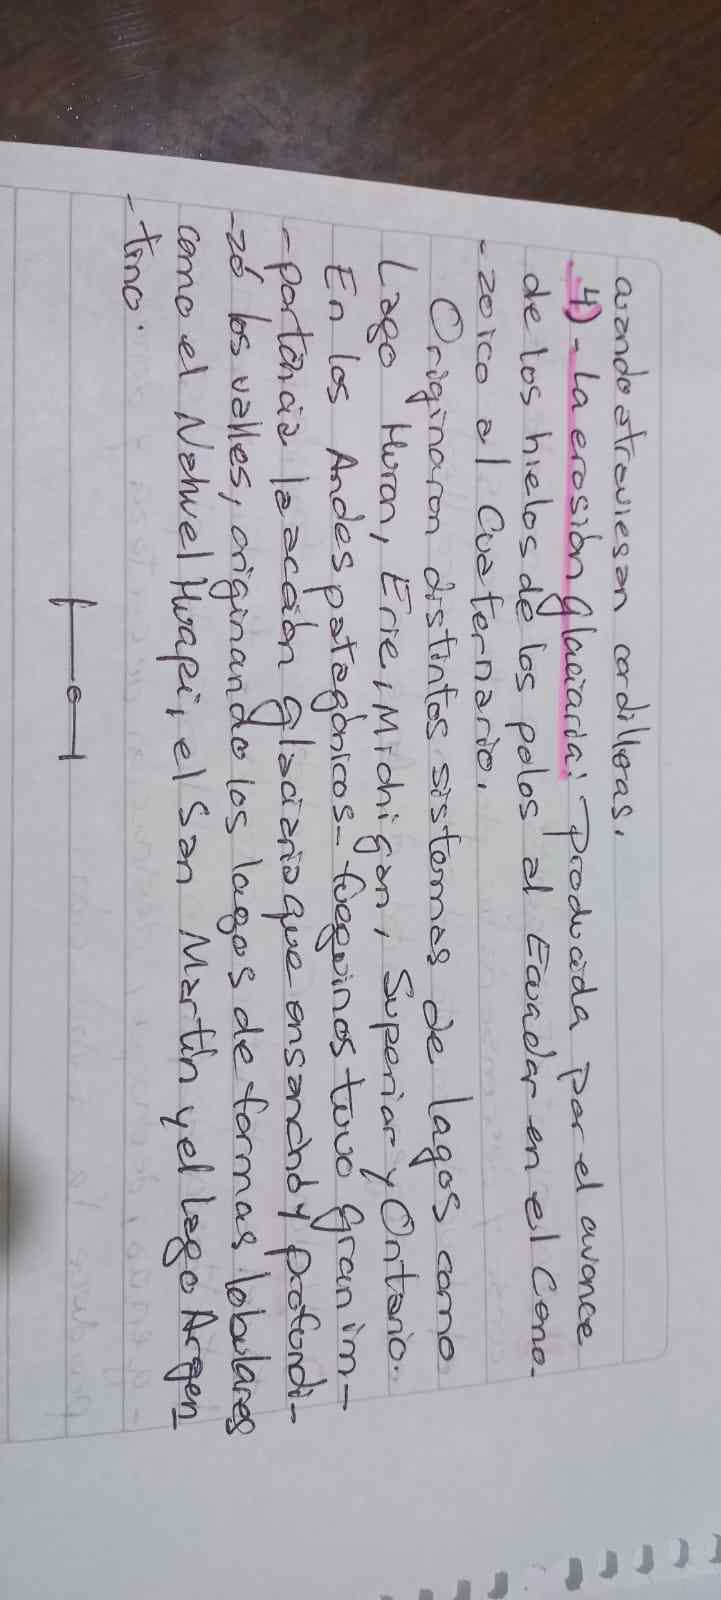 cuando atraviesan cordilleras.
4)- La erosión glaciaria: Producida por el avance
de los hielos de los polos al Ecuador en el Ceno-
-zoico al Cuaternario.
Originaron distintos sistemas de lagos como
Lago Huron, Erie, Michigan, Superior y Ontario.
En los Andes patagónicos-fueguinos tuvo gran im-
-portancia la acción glaciaria que ensanchó y profundi-
-zó los valles, originando los lagos de formas lobulares
como el Nahuel Huapi, el San Martín y el lago Argen-
-tino.